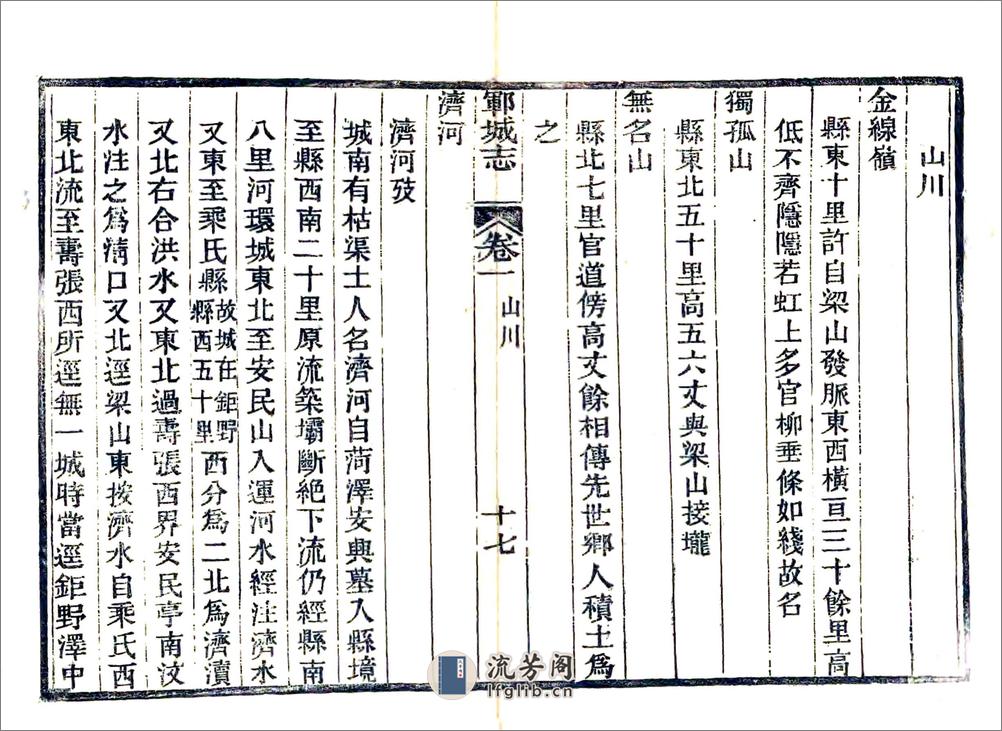 山川
金線嶺
縣東十里許自梁山發脈東西橫亘三十餘里高
低不齊隱隱若虹上多官柳垂條如綫故名
獨孤山
縣東北五十里高五六丈與梁山接壠
無名山
縣北七里官道傍高丈餘相傳先世鄉人積土爲
之
鄆城志 卷一 山川 十七
濟河
濟河攷
城南有枯渠土人名濟河自菏澤安興墓入縣境
至縣西南二十里原流築壩斷絕下流仍經縣南
八里河環城東北至安民山入運河水經注濟水
又東至乘氏縣故城在鉅野縣西五十里西分爲二北爲濟瀆
又北右合洪水又東北過壽張西界安民亭南汶
水注之爲淸口又北逕梁山東按濟水自乘氏西
東北流至壽張西所逕無一城時當逕鉅野澤中
流芳阁
lfglib.cn